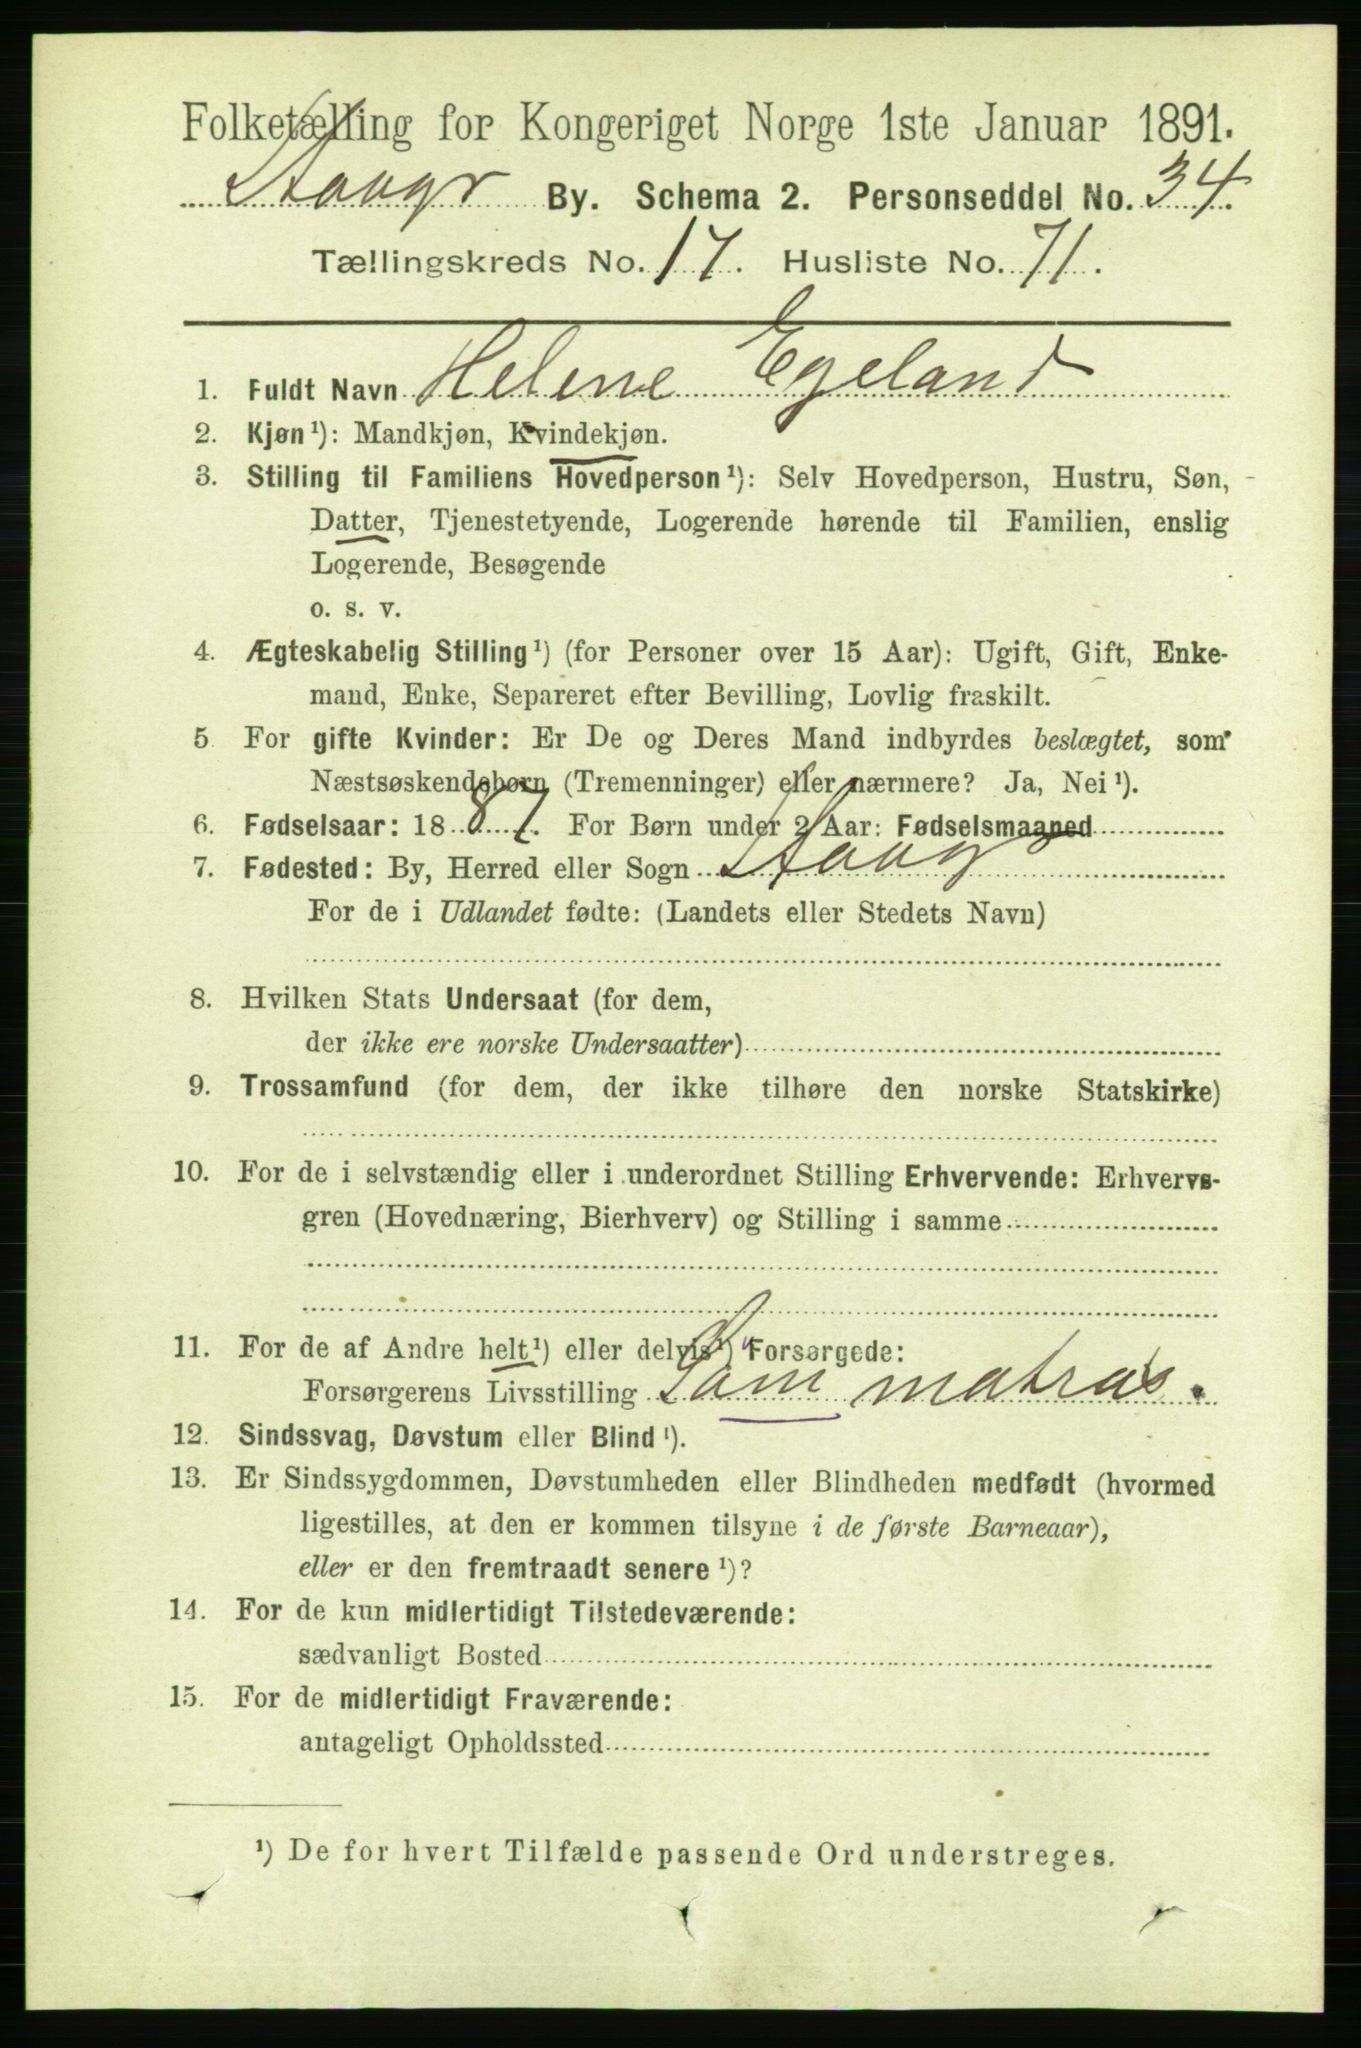 Folketælling for Kongeriget Norge 1ste Januar 1891.
Stavgr By. Schema 2. Personseddel No. 34.
Tællingskreds No. 17. Husliste No. 71.
1. Fuldt Navn Helene Egeland
2. Kjøn¹): Mandkjøn, Kvindekjøn.
3. Stilling til Familiens Hovedperson¹): Selv Hovedperson, Hustru, Søn,
Datter, Tjenestetyende, Logerende hørende til Familien, enslig
Logerende, Besøgende
o. s. v.
4. Ægteskabelig Stilling¹) (for Personer over 15 Aar): Ugift, Gift, Enke-
mand, Enke, Separeret efter Bevilling, Lovlig fraskilt.
5 For gifte Kvinder: Er De og Deres Mand indbyrdes beslægtet, som
Næstsøskendebørn (Tremenninger) eller nærmere? Ja, Nei¹).
6. Fødselsaar: 1887. For Børn under 2 Aar: Fødselsmaaned
7. Fødested: By, Herred eller Sogn Stavgr
For de i Udlandet fødte: (Landets eller Stedets Navn)
8. Hvilken Stats Undersaat (for dem,
der ikke ere norske Undersaatter)
9. Trossamfund (for dem, der ikke tilhøre den norske Statskirke)
10. For de i selvstændig eller i underordnet Stilling Erhvervende: Erhvervs-
gren (Hovednæring, Bierhverv) og Stilling i samme
11. For de af Andre helt¹) eller delvis¹) Forsørgede:
Forsørgerens Livsstilling matros.
12. Sindssvag, Døvstum eller Blind¹).
13. Er Sindssygdommen, Døvstumheden eller Blindheden medfødt (hvormed
ligestilles, at den er kommen tilsyne i de første Barneaar),
eller er den fremtraadt senere¹)?
14. For de kun midlertidigt Tilstedeværende:
sædvanligt Bosted
15. For de midlertidigt Fraværende:
antageligt Opholdssted
¹) De for hvert Tilfælde passende Ord understreges.